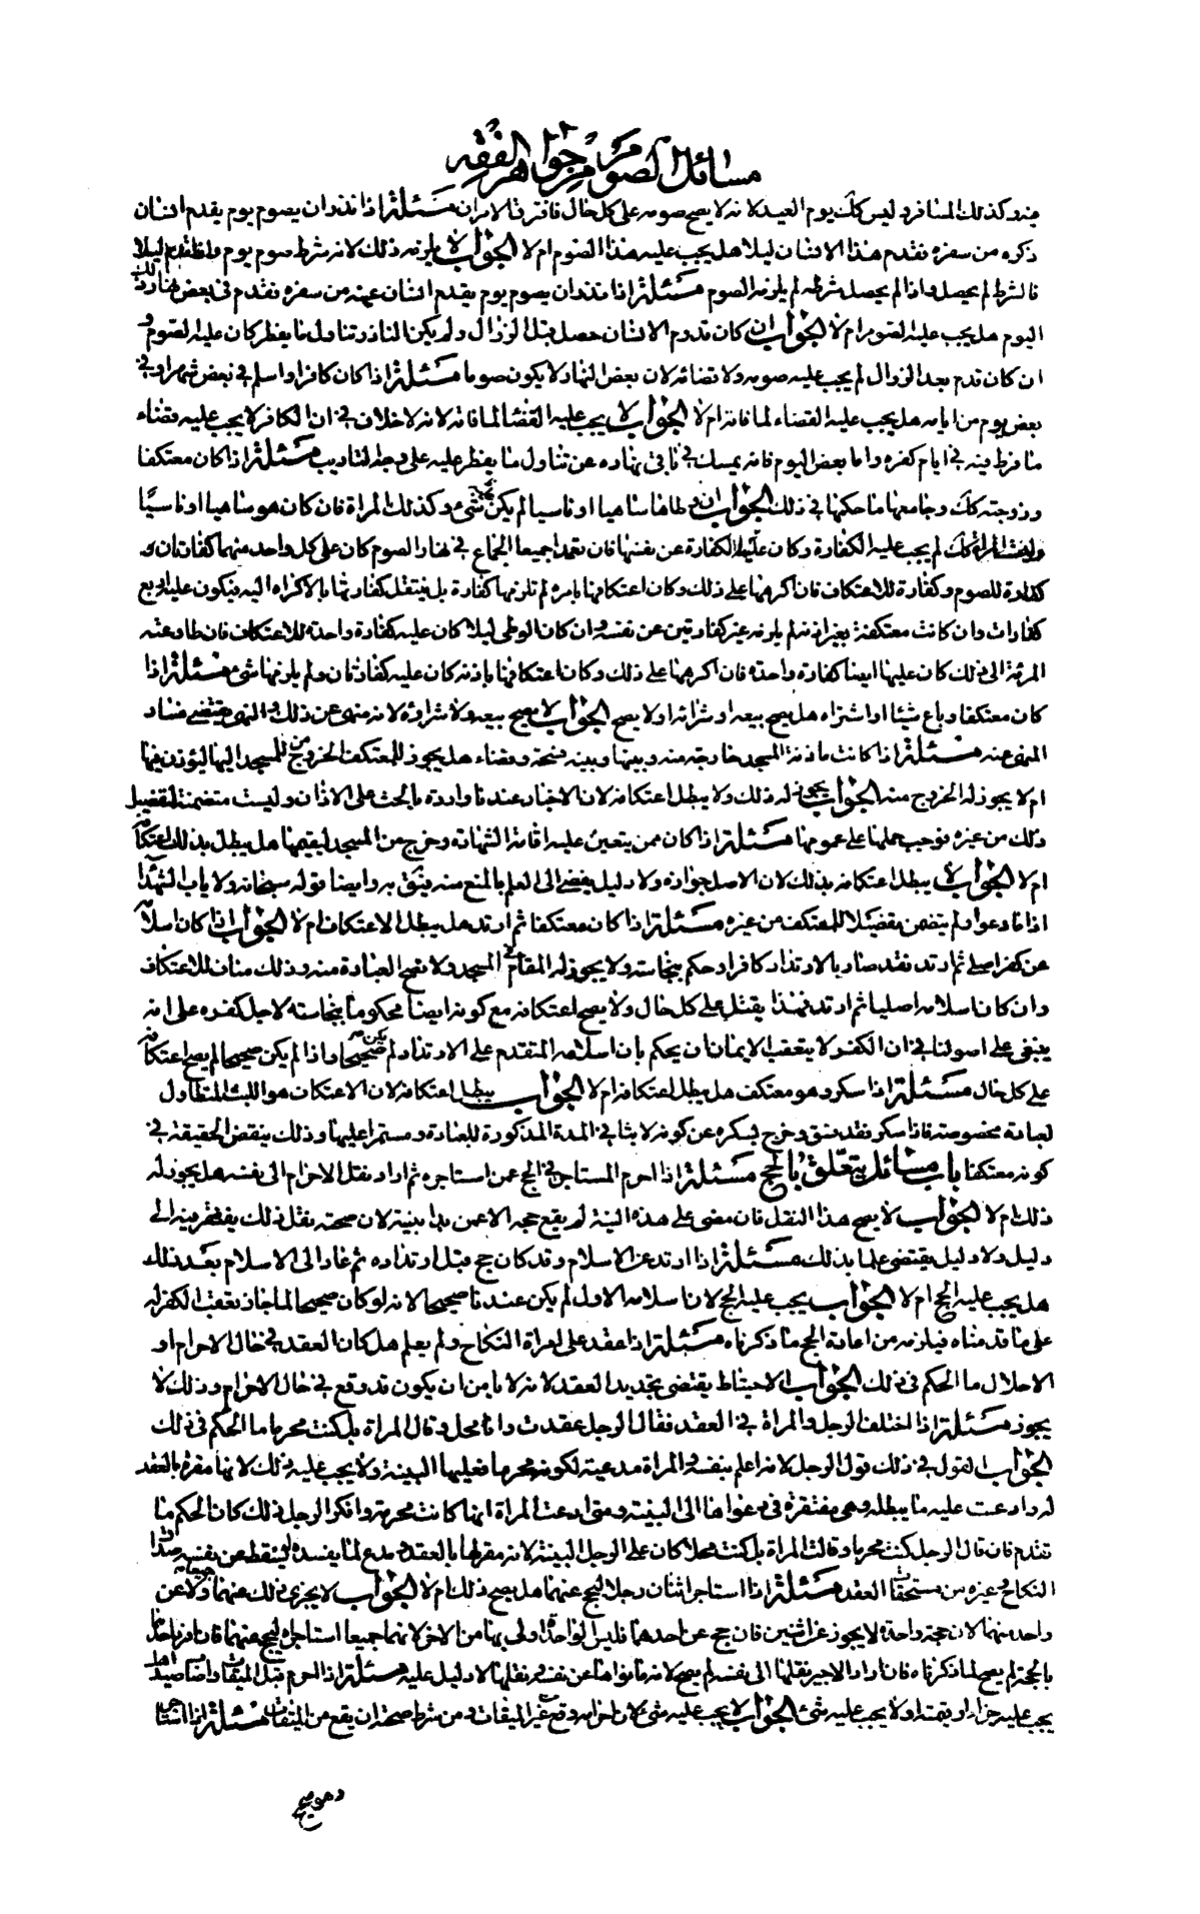 مسائل الصوم من جواهر الفقه
فيه وكذلك المسافر وليس كك يوم العيد لانه لا يصح صومه على كل حال فافترق الامران مسئلة اذا نذر ان يصوم يوم يقدم انسان
ذكره من سفره فقدم هذا الانسان ليلا هل يجب عليه هذا الصوم ام لا الجواب لا يلزمه ذلك لانه شرط صوم يوم واذا قدم ليلا
فالشرط لم يحصل واذا لم يحصل شرطه لم يلزمه الصوم مسئلة اذا نذر ان يصوم يوم يقدم انسان عينه من سفره فقدم في بعض نهار ذلك
اليوم هل يجب عليه الصوم ام لا الجواب ان كان قدوم الانسان حصل قبل الزوال ولم يكن الناذر تناول ما يفطر كان عليه الصوم و
ان كان قدم بعد الزوال لم يجب عليه صومه ولا قضائه لان بعض النهار لا يكون صوما مسئلة اذا كان كافرا واسلم في بعض شهر او في
بعض يوم من ايامه هل يجب عليه القضاء لما فاته ام لا الجواب لا يجب عليه القضاء لما فاته لانه لا خلاف في ان الكافر لا يجب عليه قضاء
ما فرط فيه في ايام كفره واما بعض اليوم فانه يمسك في باقي نهاره عن تناول ما يفطر عليه على وجه التاديب مسئلة اذا كان معتكفا
وزوجته كك وجامعها ما حكمها في ذلك الجواب ان وطاها ساهيا او ناسيا لم يكن عليه شيء وكذلك المراة فان كان هو ساهيا او ناسيا
وليست المراة كك لم يجب عليه الكفارة وكان عليها الكفارة عن نفسها فان تعمدا جميعا الجماع في نهار الصوم كان على كل واحد منهما كفارتان و
كفارة للصوم وكفارة للاعتكاف فان اكرهها على ذلك وكان اعتكافها بامره لم تلزمها كفارة بل ينتقل كفارتها بالاكراه اليه فيكون عليه اربع
كفارات وان كانت معتكفة بغير اذنه لم يلزمه غير كفارتين عن نفسه وان كان الوطى ليلا كان عليه كفارة واحدة للاعتكاف فان طاوعته
المرئة الى ذلك كان عليها ايضا كفارة واحدة فان اكرهها على ذلك وكان اعتكافها باذنه كان عليه كفارتان ولم يلزمها شيء مسئلة اذا
كان معتكفا وباع شيئا او اشتراه هل يصح بيعه او شرائه او لا يصح الجواب لا يصح بيعه ولا شراؤه لانه منهى عن ذلك والنهى يقتضى فساد
المنهى عنه مسئلة اذا كانت ماذنة المسجد خارجة منه وبينها وبينه فسحة وفضاء هل يجوز للمعتكف الخروج من المسجد اليها ليؤذن فيها
ام لا يجوز له الخروج منه الجواب يجوز له ذلك ولا يبطل اعتكافه لان الاخبار عندنا واردة بالحث على الاذان وليست متضمنة لتفضيل
ذلك من غيره فوجب حملها على عمومها مسئلة اذا كان ممن يتعين عليه اقامة الشهادة وخرج من المسجد ليقيمها هل يبطل بذلك اعتكافه
ام لا الجواب لا يبطل اعتكافه بذلك لان الاصل جوازه ولا دليل يفضى الى العلم بالمنع منه يثق به وايضا قوله سبحانه ولا ياب الشهداء
اذا ما دعوا ولم يتضمن تفضيلا للمعتكف من غيره مسئلة اذا كان معتكفا ثم ارتد هل يبطل الاعتكاف ام لا الجواب اذا كان اسلامه
عن كفر اصلي ثم ارتد فقد صار بالارتداد كافرا وحكم بنجاسته ولا يجوز له المقام في المسجد ولا تصح العبادة منه وذلك مناف للاعتكاف
وان كان اسلامه اصليا ثم ارتد فهذا يقتل على كل حال ولا يصح اعتكافه مع كونه ايضا محكوما بنجاسته لاجل كفره على انه
ينبغى على اصولنا في ان الكفر لا يتعقب الايمان ان يحكم بان اسلامه المتقدم على الارتداد لم يكن صحيحا واذا لم يكن صحيحا لم يصح اعتكافه
على كل حال مسئلة اذا سكر وهو معتكف هل يبطل اعتكافه ام لا الجواب يبطل اعتكافه لان الاعتكاف هو اللبث المتطاول
لعبادة مخصوصة فاذا سكر فقد فسق وخرج بسكره عن كونه لابثا في المدة المذكورة للعبادة ومستمرا عليها وذلك ينقض الحقيقة في
كونه معتكفا باب مسائل يتعلق بالحج مسئلة اذا احرم المستاجر في الحج عمن استاجره ثم اراد نقل الاحرام الى نفسه هل يجوز له
ذلك ام لا الجواب لا يصح هذا النقل فان مضى على هذه النية لم يقع حجه الا عمن بدا بنيته لان صحة نقل ذلك يفتقر فيه الى
دليل ولا دليل يقتضى علما بذلك مسئلة اذا ارتد عن الاسلام وقد كان حج قبل ارتداده ثم عاد الى الاسلام بعد ذلك
هل يجب عليه الحج ام لا الجواب يجب عليه الحج لان اسلامه الاول لم يكن عندنا صحيحا لانه لو كان صحيحا لما جاز تعقب الكفر له
على ما قدمناه فيلزمه من اعادة الحج ما ذكرناه مسئلة اذا عقد على امراة النكاح ولم يعلم هل كان العقد في حال الاحرام او
الاحلال ما الحكم في ذلك الجواب الاحتياط يقتضى تجديد العقد لانه لا يامن ان يكون قد وقع في حال الاحرام وذلك لا
يجوز مسئلة اذا اختلف الرجل والمراة في العقد فقال الرجل عقدت وانا محل وقال المراة بل كنت محرما ما الحكم في ذلك
الجواب القول في ذلك قول الرجل لانه اعلم بنفسه والمراة مدعية لكونه محرما فعليها البينة ولا يجب عليه ذلك لانها مقرة بالعقد
له وادعت عليه ما يبطله وهى مفتقرة في دعواها الى البينة ومتى ادعت المراة انها كانت محرمة وانكر الرجل ذلك كان الحكم ما
تقدم فان قال الرجل كنت محرما وقالت المراة بل كنت محلا كان على الرجل البينة لانه مقر لها بالعقد ومدع لما يفسده ليسقط عن نفسه صداق
النكاح وغيره من مستحقات العقد مسئلة اذا استاجر اثنان رجلا ليحج عنهما هل يصح ذلك ام لا الجواب لا يجزى ذلك عنهما ولا عن
واحد منهما لان حجة واحدة لا يجوز عن اثنين فان حج عن احدهما فليس الواحد اولى بها من الاخر لانهما جميعا استاجراه ليحج عنهما فان افرد احدهما
بالحجة لم يصح لما ذكرناه فان اراد الاجير نقلها الى نفسه لم يصح لانه ما نواها عن نفسه ونقلها لا دليل عليه مسئلة اذا احرم قبل الميقات واصاب صيدا هل
يجب عليه جزاء او قيمته او لا يجب عليه شئ الجواب لا يجب عليه شئ لان احرامه وقع في غير الميقات ومن شرط صحته ان يقع من الميقات مسئلة اذا استاجر